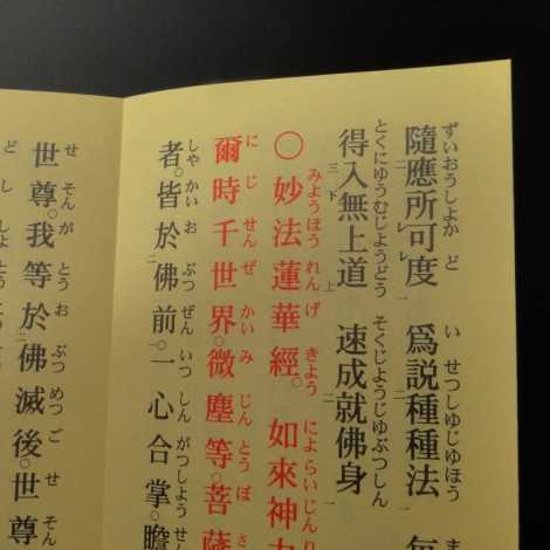 隨應所可度 爲説種種法
ずいおうしよかど いせつしゆじゆほう
得入無上道 速成就佛身
とくにゆうむじようどう そくじようじゆぶつしん
〇妙法蓮華經。如來神
みようほうれんげきよう によらいじんり
爾時千世界。微塵等。菩薩
にじせんぜかいみじんとうぼさ
者。皆於佛前。一心合掌。瞻
しやかいおぶつぜんいつしんがつしようせん
世尊。我等於佛滅後。世尊
せそんがとうおぶつめつごせそん